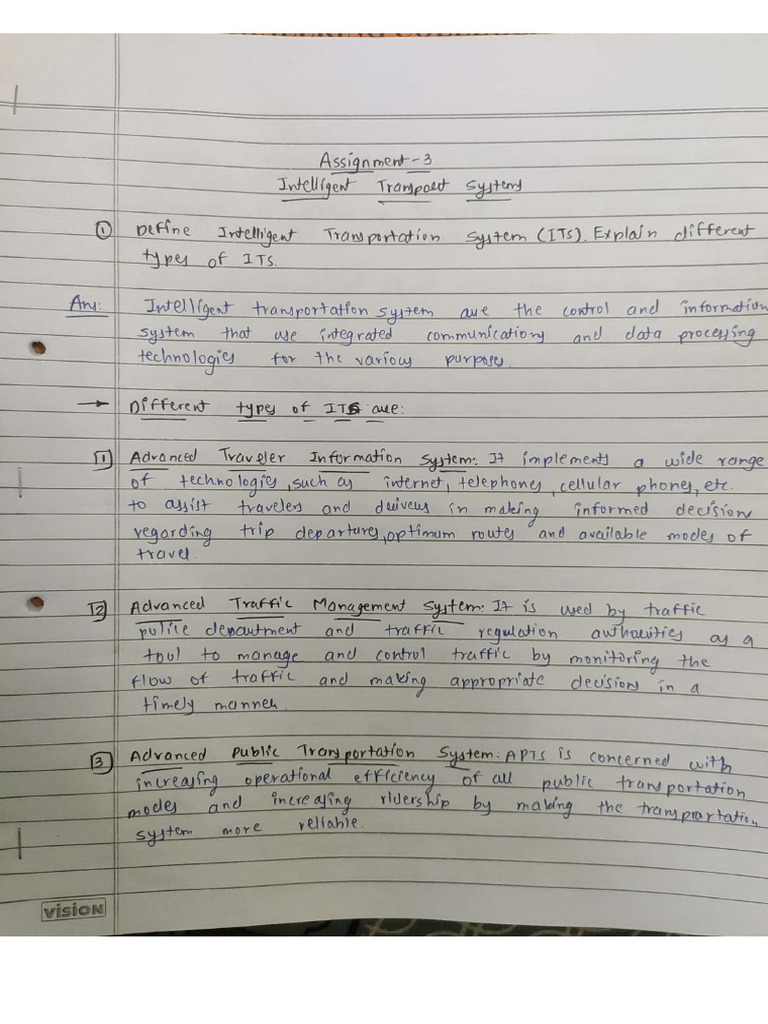 Assignment-3
Intelligent Transport Systems
① Define Intelligent Transportation System (ITS). Explain different
types of ITS.
Ans: Intelligent transportation system are the control and information
system that use integrated communications and data processing
technologies for the various purpose.
→ Different types of ITS are:
1 Advanced Traveler Information System: It implements a wide range
of technologies, such as internet, telephones, cellular phones, etc.
to assist travelers and drivers in making informed decisions
regarding trip departures, optimum routes and available modes of
travel.
2 Advanced Traffic Management System: It is used by traffic
police department and traffic regulation authorities as a
tool to manage and control traffic by monitoring the
flow of traffic and making appropriate decisions in a
timely manner.
3 Advanced Public Transportation System: APTS is concerned with
increasing operational efficiency of all public transportation
modes and increasing ridership by making the transprortation
system more reliable.
VISION